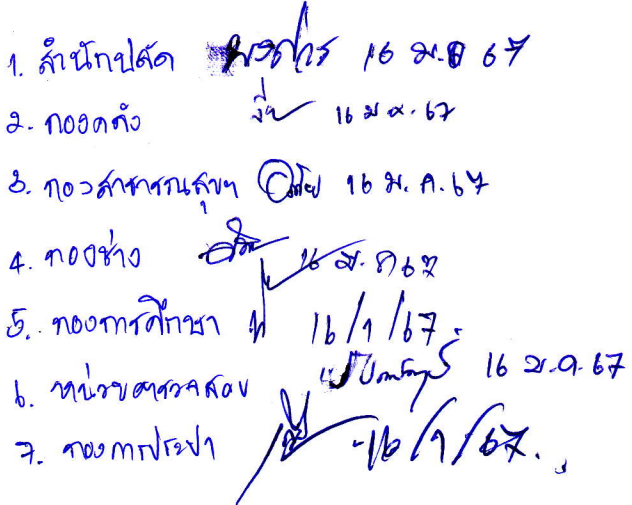 1. สำนักปลัด 16 ม.ค 67
2. กองคลัง 16 ม.ค. 67
3. กองสาธารณสุขฯ 16 ม.ค. 67
4. กองช่าง 16 ม.ค 67
5. กองการศึกษา 16/1/67.
6. หน่วยตรวจสอบ 16 ม.ค. 67
7. กองการประปา 16/1/67.